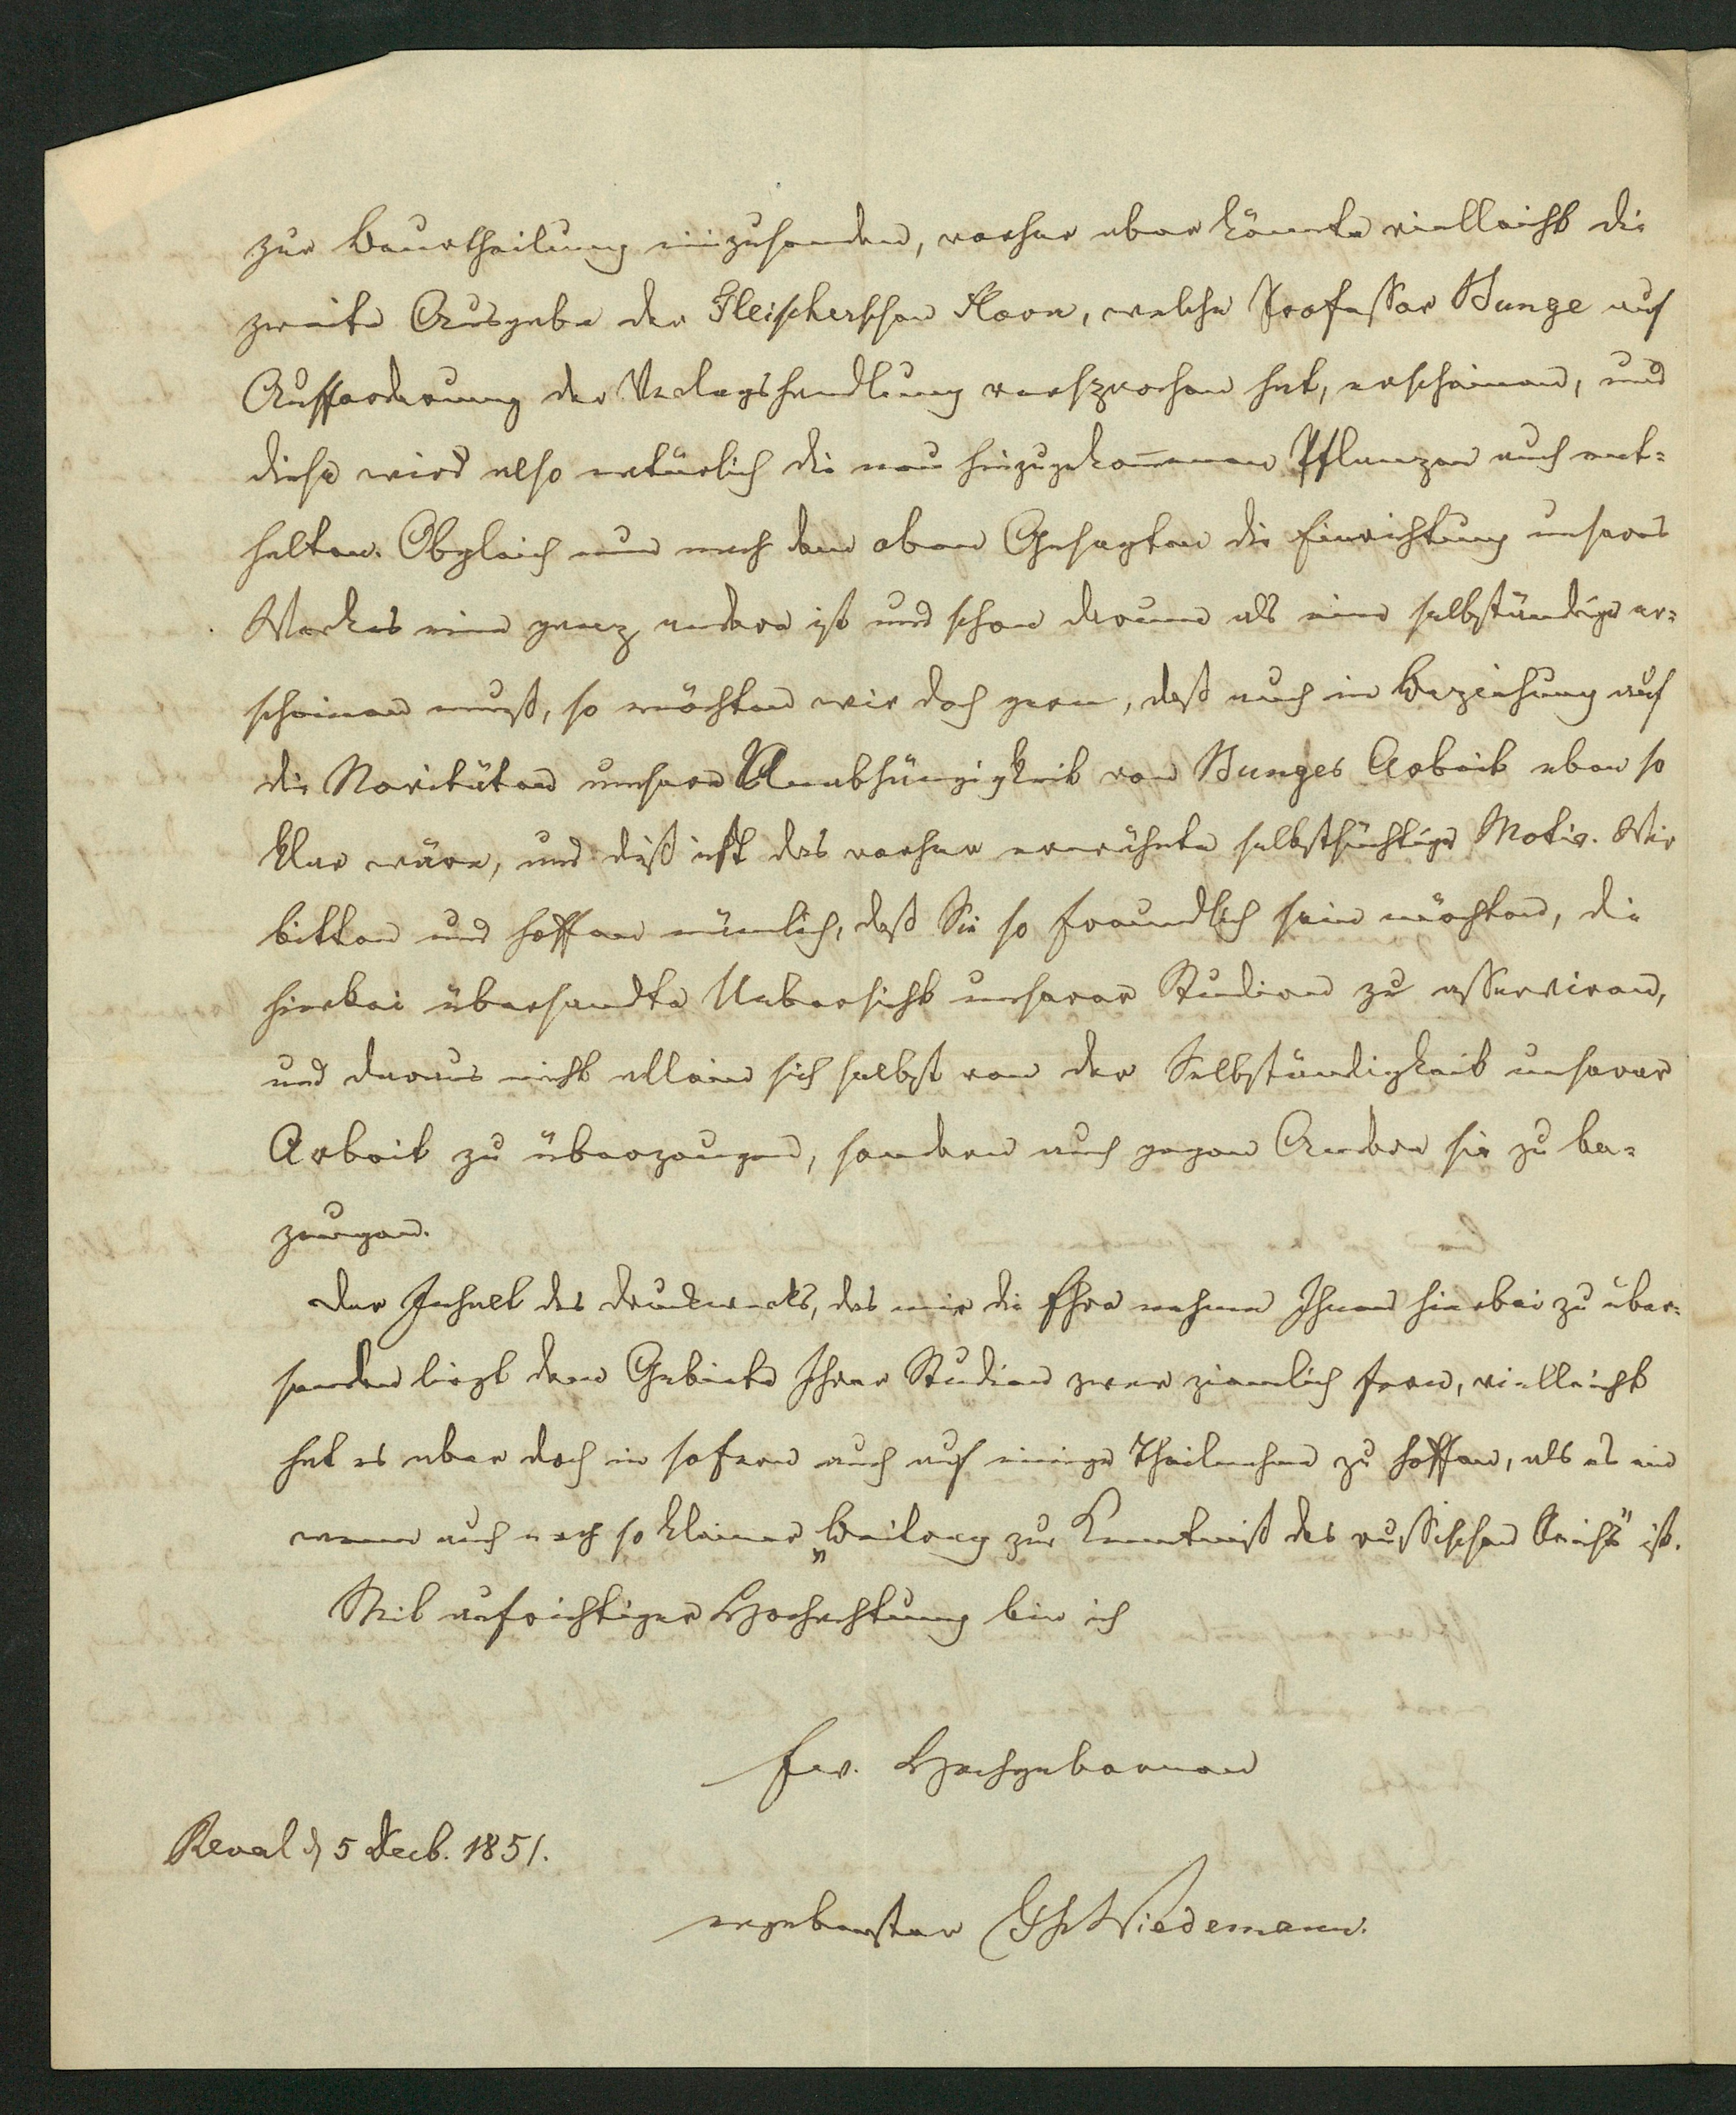 zur Beurtheilung einzusenden, vorher aber könnte vielleicht die
zweite Ausgabe der Fleischerschen Flora, welche Professor Bunge auf
Aufforderung der Verlagshandlung versprochen hat, erscheinen, und
diese wird also natürlich die neu hinzugekommenen Pflanzen auch ent-
halten. Obgleich nun nach dem oben Gesagten die Einrichtung unseres
Werkes eine ganz andere ist und schon darum als eine selbständige er-
scheinen muß, so möchten wir doch gern, daß auch in Beziehung auf
die Novitäten unsere Unabhängigkeit von Bunges Arbeit eben so
klar wäre, und dieß ist das vorher erwähnte selbstsüchtige Motiv. Wir
bitten und hoffen nämlich, daß Sie so freundlich sein möchten, die
hierbei übersandte Uebersicht unserer Studien zu asserviren,
und daraus nicht allein sich selbst von der Selbständigkeit unserer
Arbeit zu überzeugen, sondern auch gegen Andere sie zu be-
zeugen.
Der Inhalt des Druckwerks, das mir die Ehre nehme Ihnen hierbei zu über-
senden liegt dem Gebiete Ihrer Studien zwar ziemlich fern, vielleicht
hat es aber doch in sofern auch auf einige Theilnahme zu hoffen, als es ein
wenn auch noch so kleiner „Beitrag zur Kenntniß des russischen Reichs" ist.
Mit aufrichtiger Hochachtung bin ich
Ew. Hochgeboren
Reval d 5 Decb. 1851.
ergebenster Wiedemann.